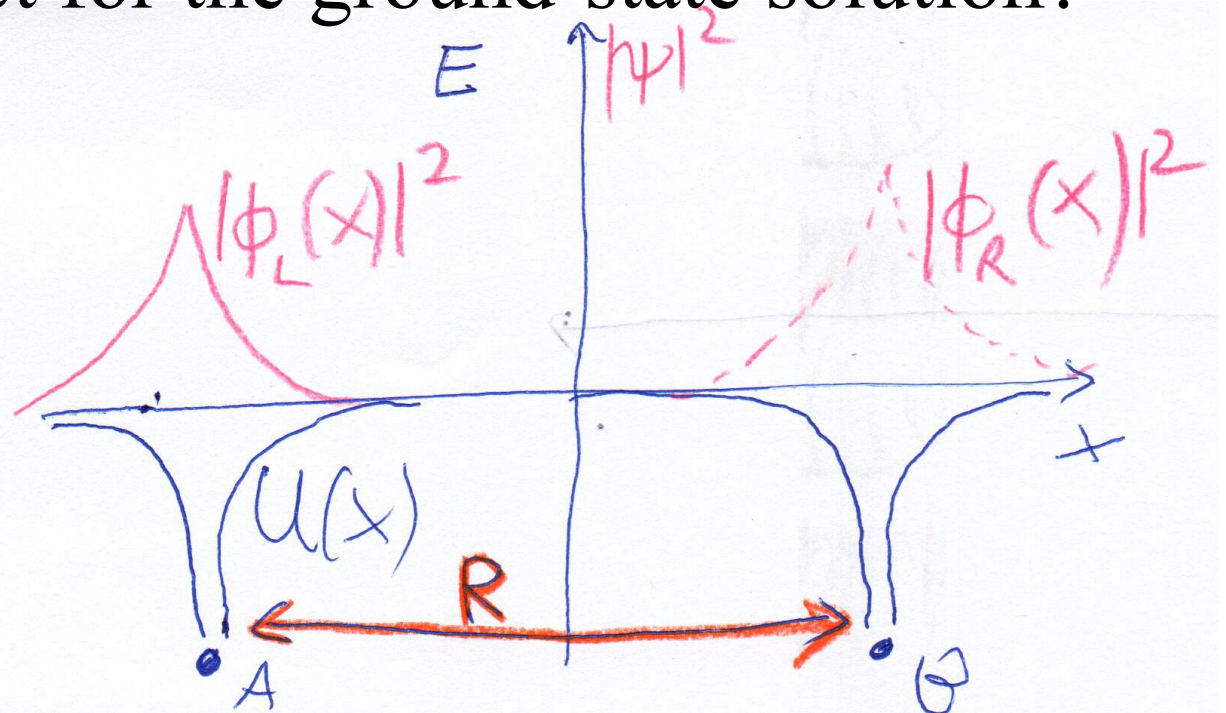 t for the ground-state solution?
E
|ψ|²
|ϕ_L(x)|²
|ϕ_R(x)|²
x
U(x)
R
A
B